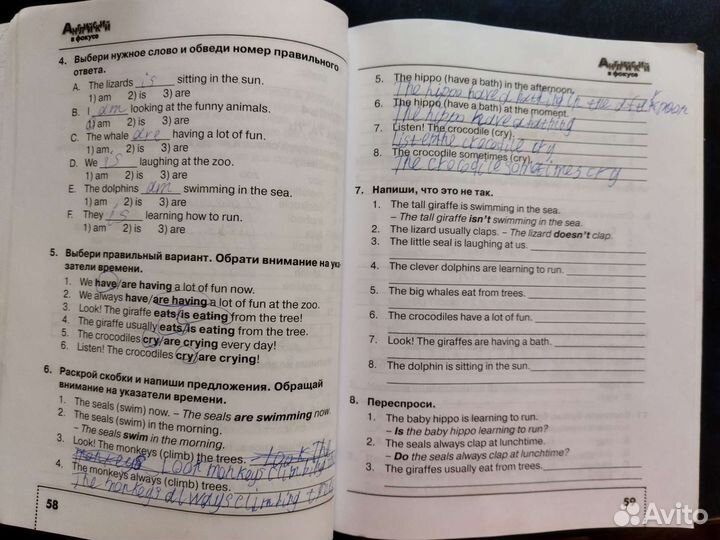 Английский
в фокусе
4. Выбери нужное слово и обведи номер правильного
ответа.
A. The lizards is sitting in the sun.
1) am 2) is 3) are
B. I am looking at the funny animals.
1) am 2) is 3) are
C. The whale are having a lot of fun.
1) am 2) is 3) are
D. We is laughing at the zoo.
1) am 2) is 3) are
E. The dolphins am swimming in the sea.
1) am 2) is 3) are
F. They is learning how to run.
1) am 2) is 3) are
5. Выбери правильный вариант. Обрати внимание на ука-
затели времени.
1. We have/are having a lot of fun now.
2. We always have/are having a lot of fun at the zoo.
3. Look! The giraffe eats/is eating from the tree!
4. The giraffe usually eats/is eating from the tree.
5. The crocodiles cry/are crying every day!
6. Listen! The crocodiles cry/are crying!
6. Раскрой скобки и напиши предложения. Обращай
внимание на указатели времени.
1. The seals (swim) now. – The seals are swimming now.
2. The seals (swim) in the morning.
– The seals swim in the morning.
3. Look! The monkeys (climb) the trees. Look The
monkeys Look monkeys climbing
4. The monkeys always (climb) trees.
The monkeys always climbing
58
Английский
в фокусе
5. The hippo (have a bath) in the afternoon.
The hippo have a in the
6. The hippo (have a bath) at the moment.
The hippo have
7. Listen! The crocodile (cry).
Listen the crocodile cry
8. The crocodile sometimes (cry).
The crocodile sometimes cry
7. Напиши, что это не так.
1. The tall giraffe is swimming in the sea.
– The tall giraffe isn't swimming in the sea.
2. The lizard usually claps. – The lizard doesn't clap.
3. The little seal is laughing at us.
4. The clever dolphins are learning to run.
5. The big whales eat from trees.
6. The crocodiles have a lot of fun.
7. Look! The giraffes are having a bath.
8. The dolphin is sitting in the sun.
8. Переспроси.
1. The baby hippo is learning to run.
– Is the baby hippo learning to run?
2. The seals always clap at lunchtime.
– Do the seals always clap at lunchtime?
3. The giraffes usually eat from trees.
59
Avito